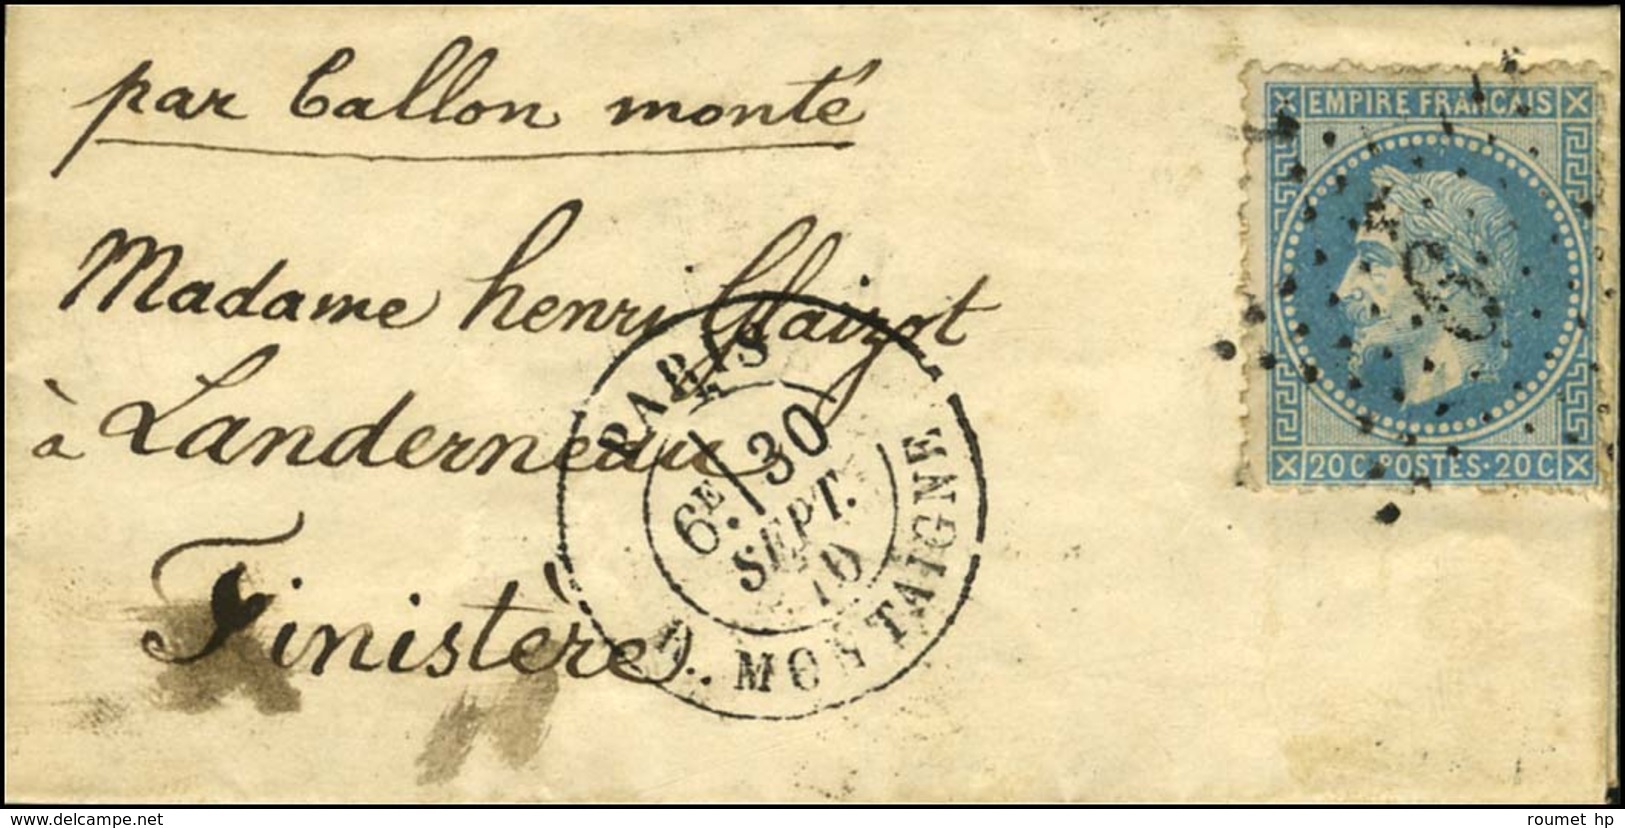 par ballon monté
EMPIRE FRANCAIS
20 C · POSTES · 20 C
Madame henri Claizot
à Landerneau
Finistère.
PARIS
6E
30
SEPT.
70
R. MONTAIGNE
www.delcampe.net
roumet hp